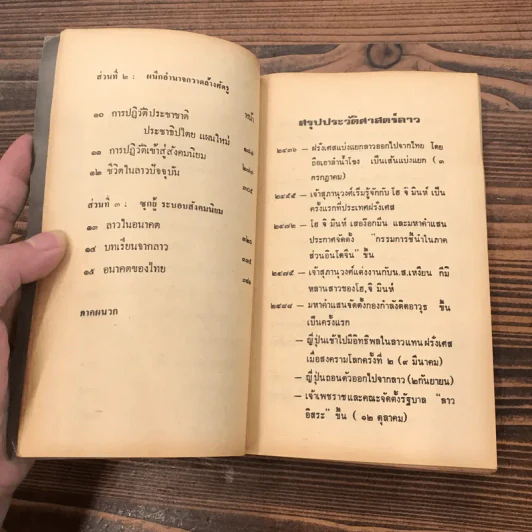 ส่วนที่ ๒ : ผนึกอำนาจกวาดล้างศัตรู
๑๐ การปฏิวัติประชาชาติ
ประชาธิปไตย แผนใหม่
๑๑ การปฏิวัติเข้าสู่สังคมนิยม
๑๒ ชีวิตในลาวปัจจุบัน
ส่วนที่ ๓ : ชุกชู้ ระบอบสังคมนิยม
๑๓ ลาวในอนาคต
๑๔ บทเรียนจากลาว
๑๕ อนาคตของไทย
ภาคผนวก
สรุปประวัติศาสตร์ลาว
๒๔๓๖ – ฝรั่งเศสแบ่งแยกลาวออกไปจากไทย โดย
ถือเอาลำน้ำโขง เป็นเส้นแบ่งแยก (๓
กรกฎาคม)
๒๔๕๕ – เจ้าสุภานุวงศ์เริ่มรู้จักกับ โฮ จิ มินห์ เป็น
ครั้งแรกที่ประเทศฝรั่งเศส
๒๔๗๒ – โฮ จิ มินห์ เสอง๊อกมึ่น และมหาคำแสน
ประกาศจัดตั้ง "กรรมการชี้นำในภาค
ส่วนอินโดจีน" ขึ้น
๒๔๗๕ – เจ้าสุภานุวงศ์แต่งงานกับน.ส.เหงียน กีมี
หลานสาวของโฮ,จิ มินห์
๒๔๘๘ – มหาคำแสนจัดตั้งกองกำลังติดอาวุธ ขึ้น
เป็นครั้งแรก
– ญี่ปุ่นเข้าไปมีอิทธิพลในลาวแทน ฝรั่งเศส
เมื่อสงครามโลกครั้งที่ ๒ (๙ มีนาคม)
– ญี่ปุ่นถอนตัวออกไปจากลาว (๒กันยายน)
– เจ้าเพชราชและคณะจัดตั้งรัฐบาล "ลาว
อิสระ" ขึ้น ( ๑๒ ตุลาคม)